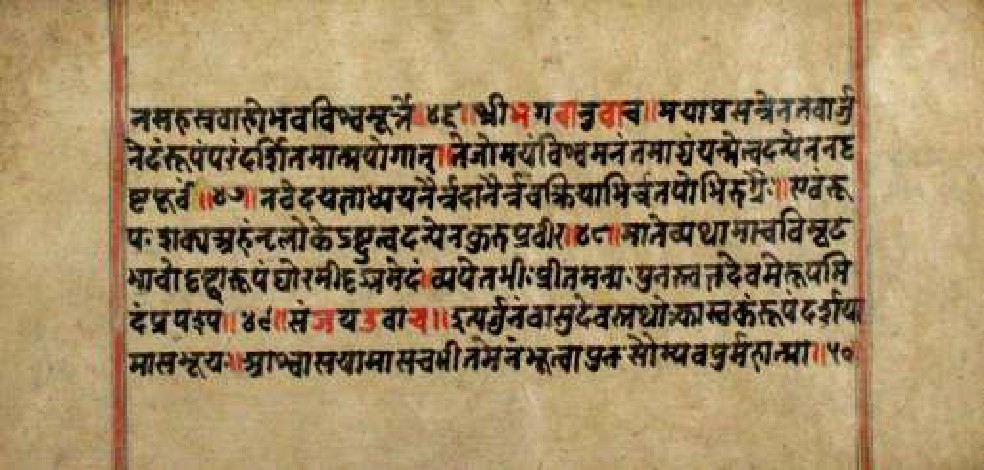 नसहस्रबाहोभवविश्वमूर्त्ते॥४६॥श्रीभगवानुवाच॥मयाप्रसन्नेनतवार्जु
नेदंरूपंपरंदर्शितमात्मयोगात्॥तेजोमयंविश्वमनंतमाद्यंयन्मेत्वदन्येननदृ
ष्टपूर्वं॥४७॥नवेदयज्ञाध्ययनैर्न्नदानैर्न्नचक्रियाभिर्न्नतपोभिरुग्रैः॥एवंरू
पःशक्यअहंनृलोकेद्रष्टुंत्वदन्येनकुरुप्रवीर॥४८॥मातेव्यथामाचविमूढ
भावोदृष्ट्वारूपंघोरमीदृङ्ममेदं॥व्यपेतभीःप्रीतमनाःपुनस्त्वंतदेवमेरूपमि
दंप्रपश्य॥४९॥संजयउवाच॥इत्यर्जुनंवासुदेवस्तथोक्त्वास्वकंरूपंदर्शया
मासभूयः॥आश्वासयामासचभीतमेनंभूत्वापुनःसौम्यवपुर्महात्मा॥५०